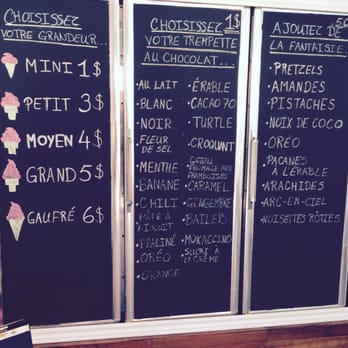 CHOISISSEZ
VOTRE GRANDEUR...
MINI 1$
PETIT 3$
MOYEN 4$
GRAND 5$
GAUFRÉ 6$
CHOISISSEZ 1$
VOTRE TREMPETTE
AU CHOCOLAT...
• AU LAIT
• BLANC
• NOIR
• FLEUR
DE SEL
• MENTHE
• BANANE
• CHILI
• PÂTE À
BISCUIT
• PRALINÉ
• ORÉO
• ORANGE
• ÉRABLE
• CACAO 70
• TURTLE
• CROQUANT
• GÂTEAU
FROMAGE AUX
FRAMBOISES
• CARAMEL
• GINGEMBRE
• BAILEYS
• MOKACCINO
• SUCRE À
LA CRÈME
AJOUTEZ DE
LA FANTAISIE
• PRETZELS
• AMANDES
• PISTACHES
• NOIX DE COCO
• ORÉO
• PACANES
À L'ÉRABLE
• ARACHIDES
• ARC-EN-CIEL
• NOISETTES RÔTIES